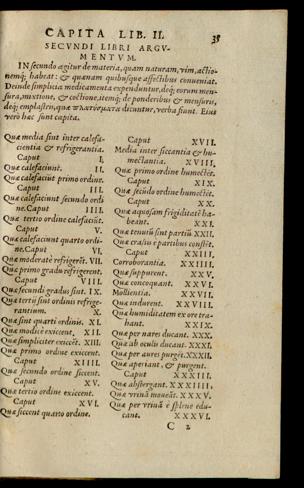 CAPITA LIB. II. 35
SECVNDI LIBRI ARGV-
MENTVM.
IN secundo agitur de materia, quam naturam, vim, actio-
nemq; habeat: & quænam quibusque affectibus conueniat.
Deinde simplicia medicamenta expenduntur, deq; eorum men-
sura, mixtione, & coctione, itemq; de ponderibus & mensuris,
deq; emplastris, quæ dicuntur, verba fiunt. Eius
vero hæc sunt capita.
Quæ media sint inter calefa-
cientia & refrigerantia.
Caput I.
Quæ calefaciunt. II.
Quæ calefaciūt primo ordine.
Caput III.
Quæ calefaciunt secundo ordi
ne. Caput IIII.
Quæ tertio ordine calefaciūt.
Caput V.
Quæ calefaciunt quarto ordi-
ne. Caput VI.
Quæ moderatè refrigerēt. VII.
Quæ primo gradu refrigerent.
Caput VIII.
Quæ secundi gradus sint. IX.
Quæ tertij sint ordinis refrige-
rantium. X.
Quæ sint quarti ordinis. XI.
Quæ modicè exiccent. XII.
Quæ simpliciter exiccēt. XIII.
Quæ primo ordine exiccent.
Caput XIIII.
Quæ secundo ordine siccent.
Caput XV.
Quæ tertio ordine exiccent.
Caput XVI.
Quæ siccent quarto ordine.
Caput XVII.
Media inter siccantia & hu-
mectantia. XVIII.
Quæ primo ordine humectēt.
Caput XIX.
Quæ secūdo ordine humectēt.
Caput XX.
Quæ aquosam frigiditatē ha-
beant. XXI.
Quæ tenuiū sint partiū XXII.
Quæ crassis è partibus constēt.
Caput XXIII.
Corroborantia. XXIIII.
Quæ suppurent. XXV.
Quæ concoquant. XXVI.
Mollientia. XXVII.
Quæ indurent. XXVIII.
Quæ humiditatem ex ore tra-
hant. XXIX.
Quæ per nares ducant. XXX.
Quæ ab oculis ducant. XXXI.
Quæ per aures purgēt. XXXII.
Quæ aperiant, & purgent.
Caput XXXIII.
Quæ abstergant. XXXIIII.
Quæ vrinā moueāt. XXXV.
Quæ per vrinā è splene edu-
cant. XXXVI.
C 2